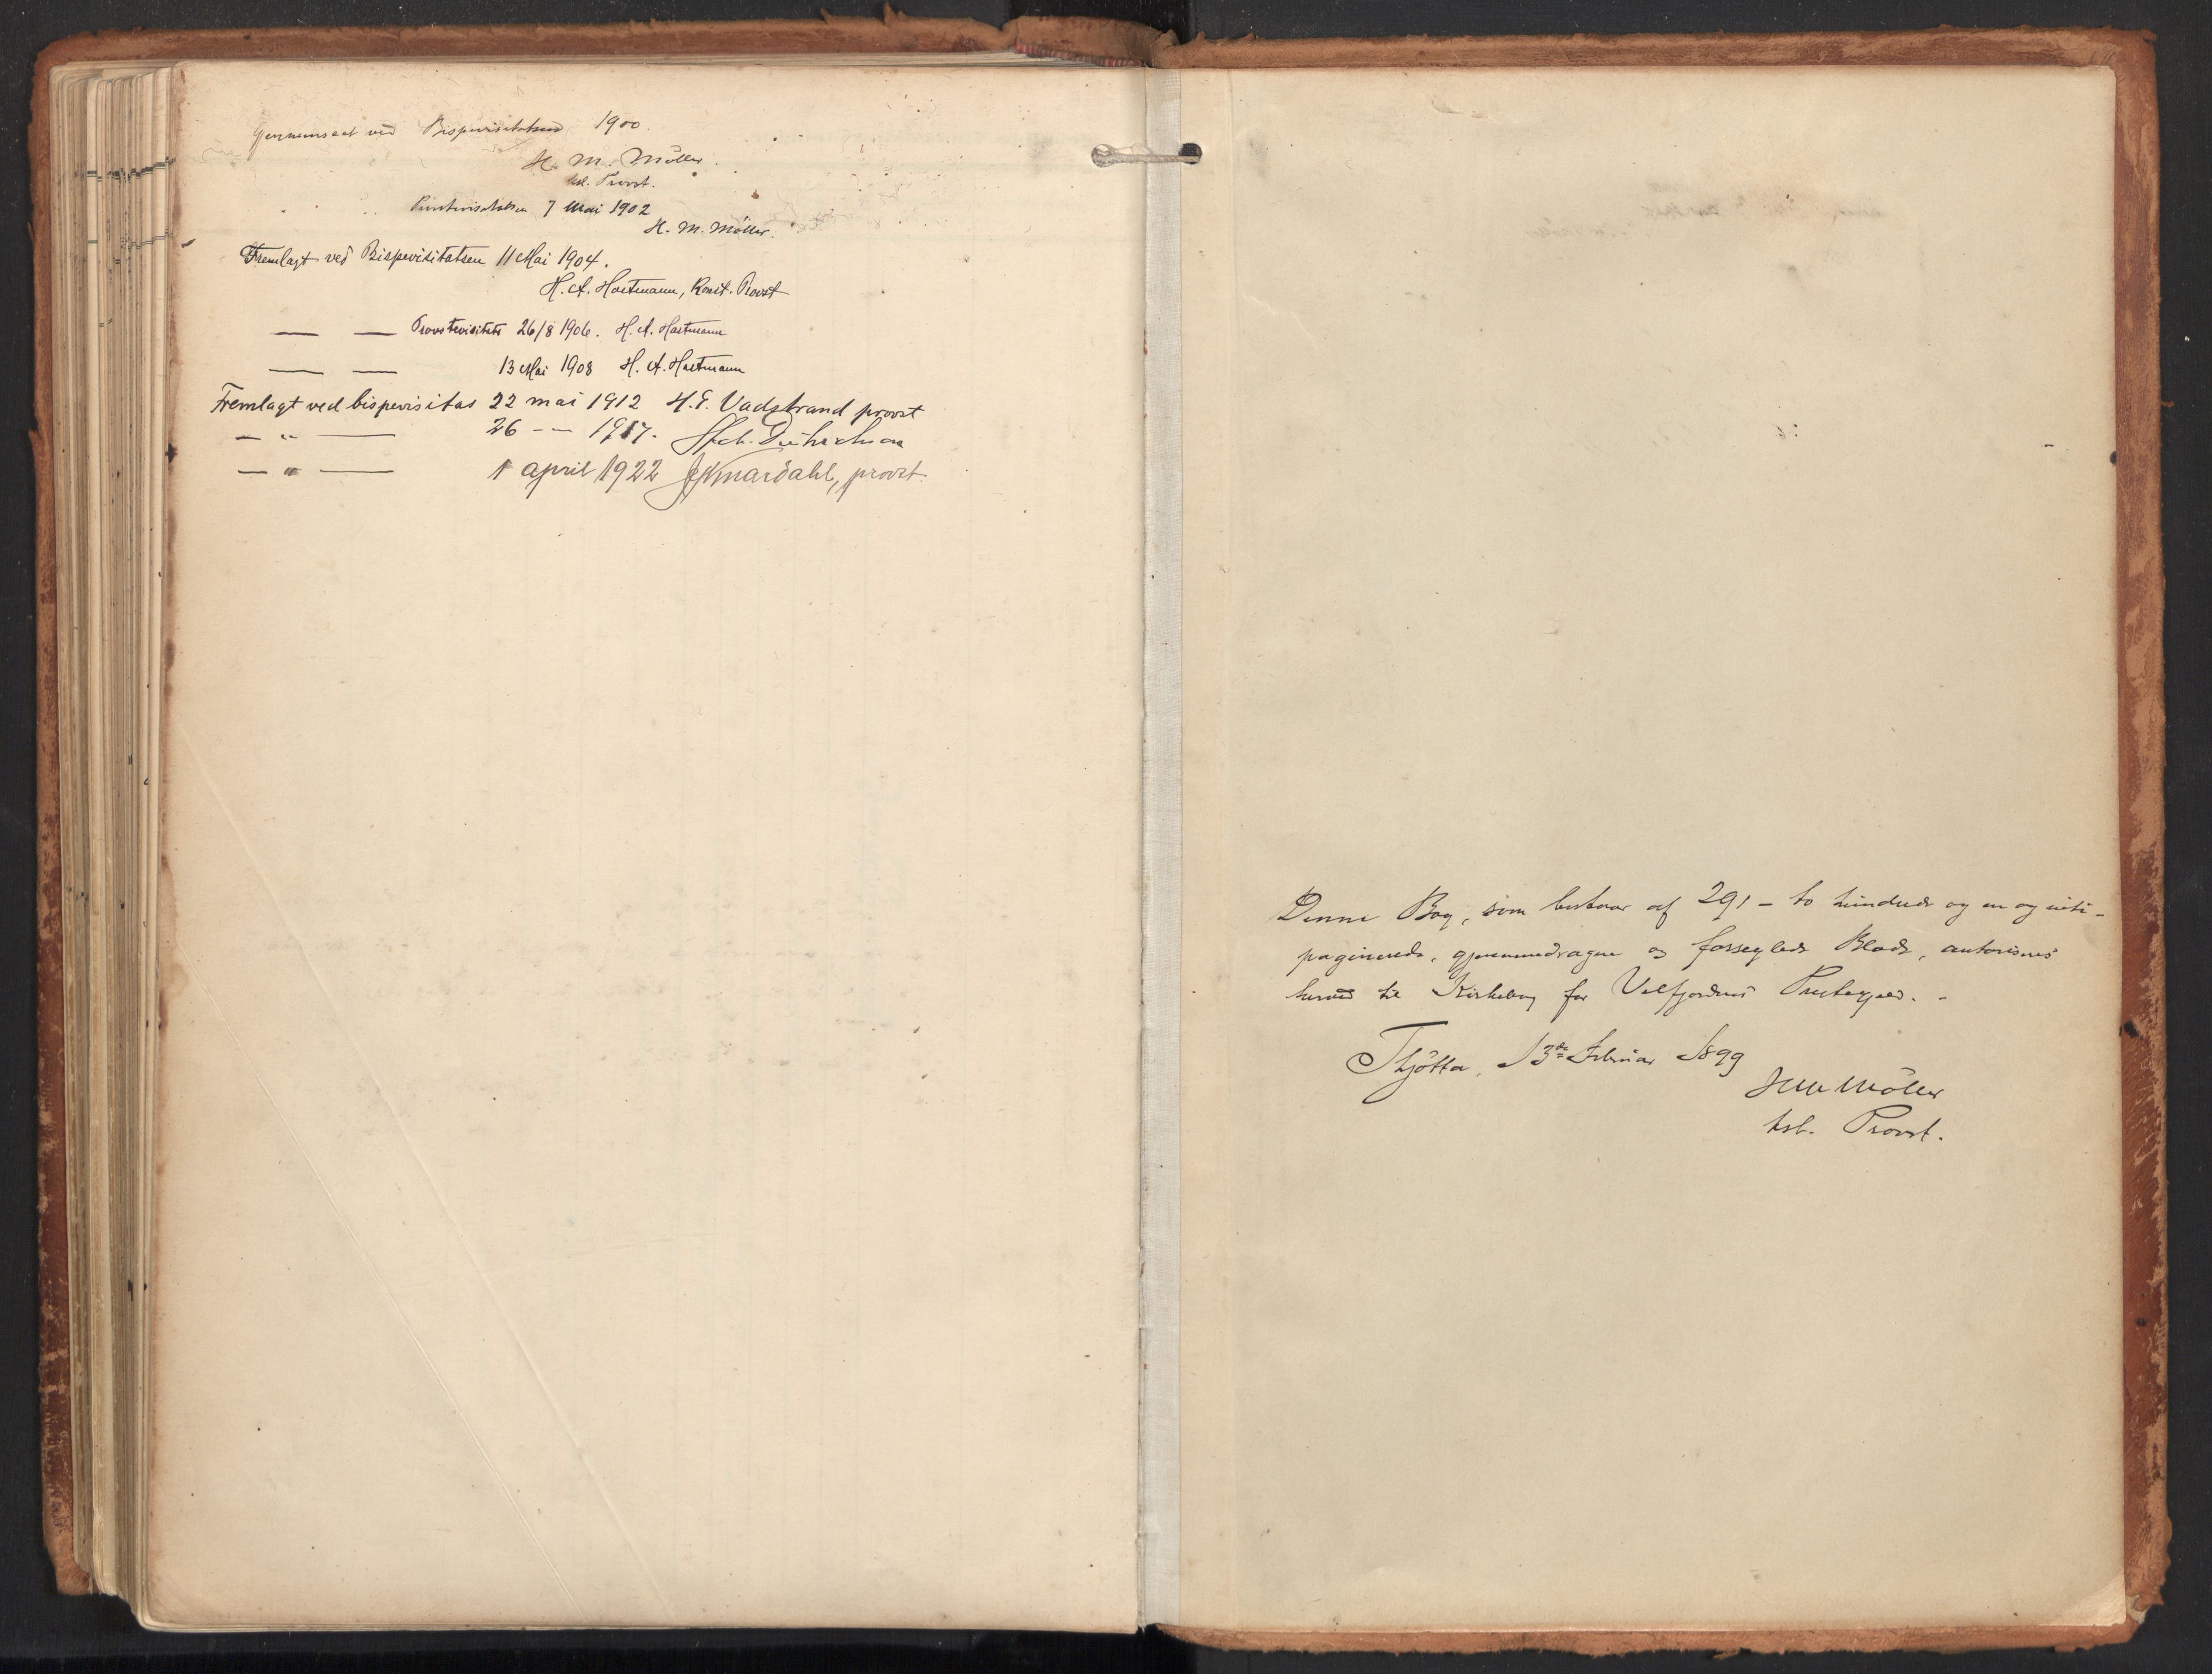 Gjennemseet ved Bispevisitatsen 1900.
H. M. Möller.
kst. Provst.
" " Provstevisitatsen 7 Mai 1902
H. M. Möller.
Fremlagt ved Bispevisitatsen 11 Mai 1904.
H. A. Hartmann, Konst. Provst
— — Provstevisitats 26/8 1906. H. A. Hartmann
— — 13 Mai 1908 H. A. Hartmann
Fremlagt ved bispevisitas 22 mai 1912 H. E. Vadstrand provst
— " — 26 -- 1917.
— " — 1 april 1922 provst.
Denne Bog, som bestaar af 291 – to hundrede og en og niti –
paginerede, gjennemdragne og forseglede Blade, autoriseres
herved til Kirkebog for Velfjordens Præstegjeld. –
Thjötta, 13de Februar 1899
H M Möller
kst. Provst.